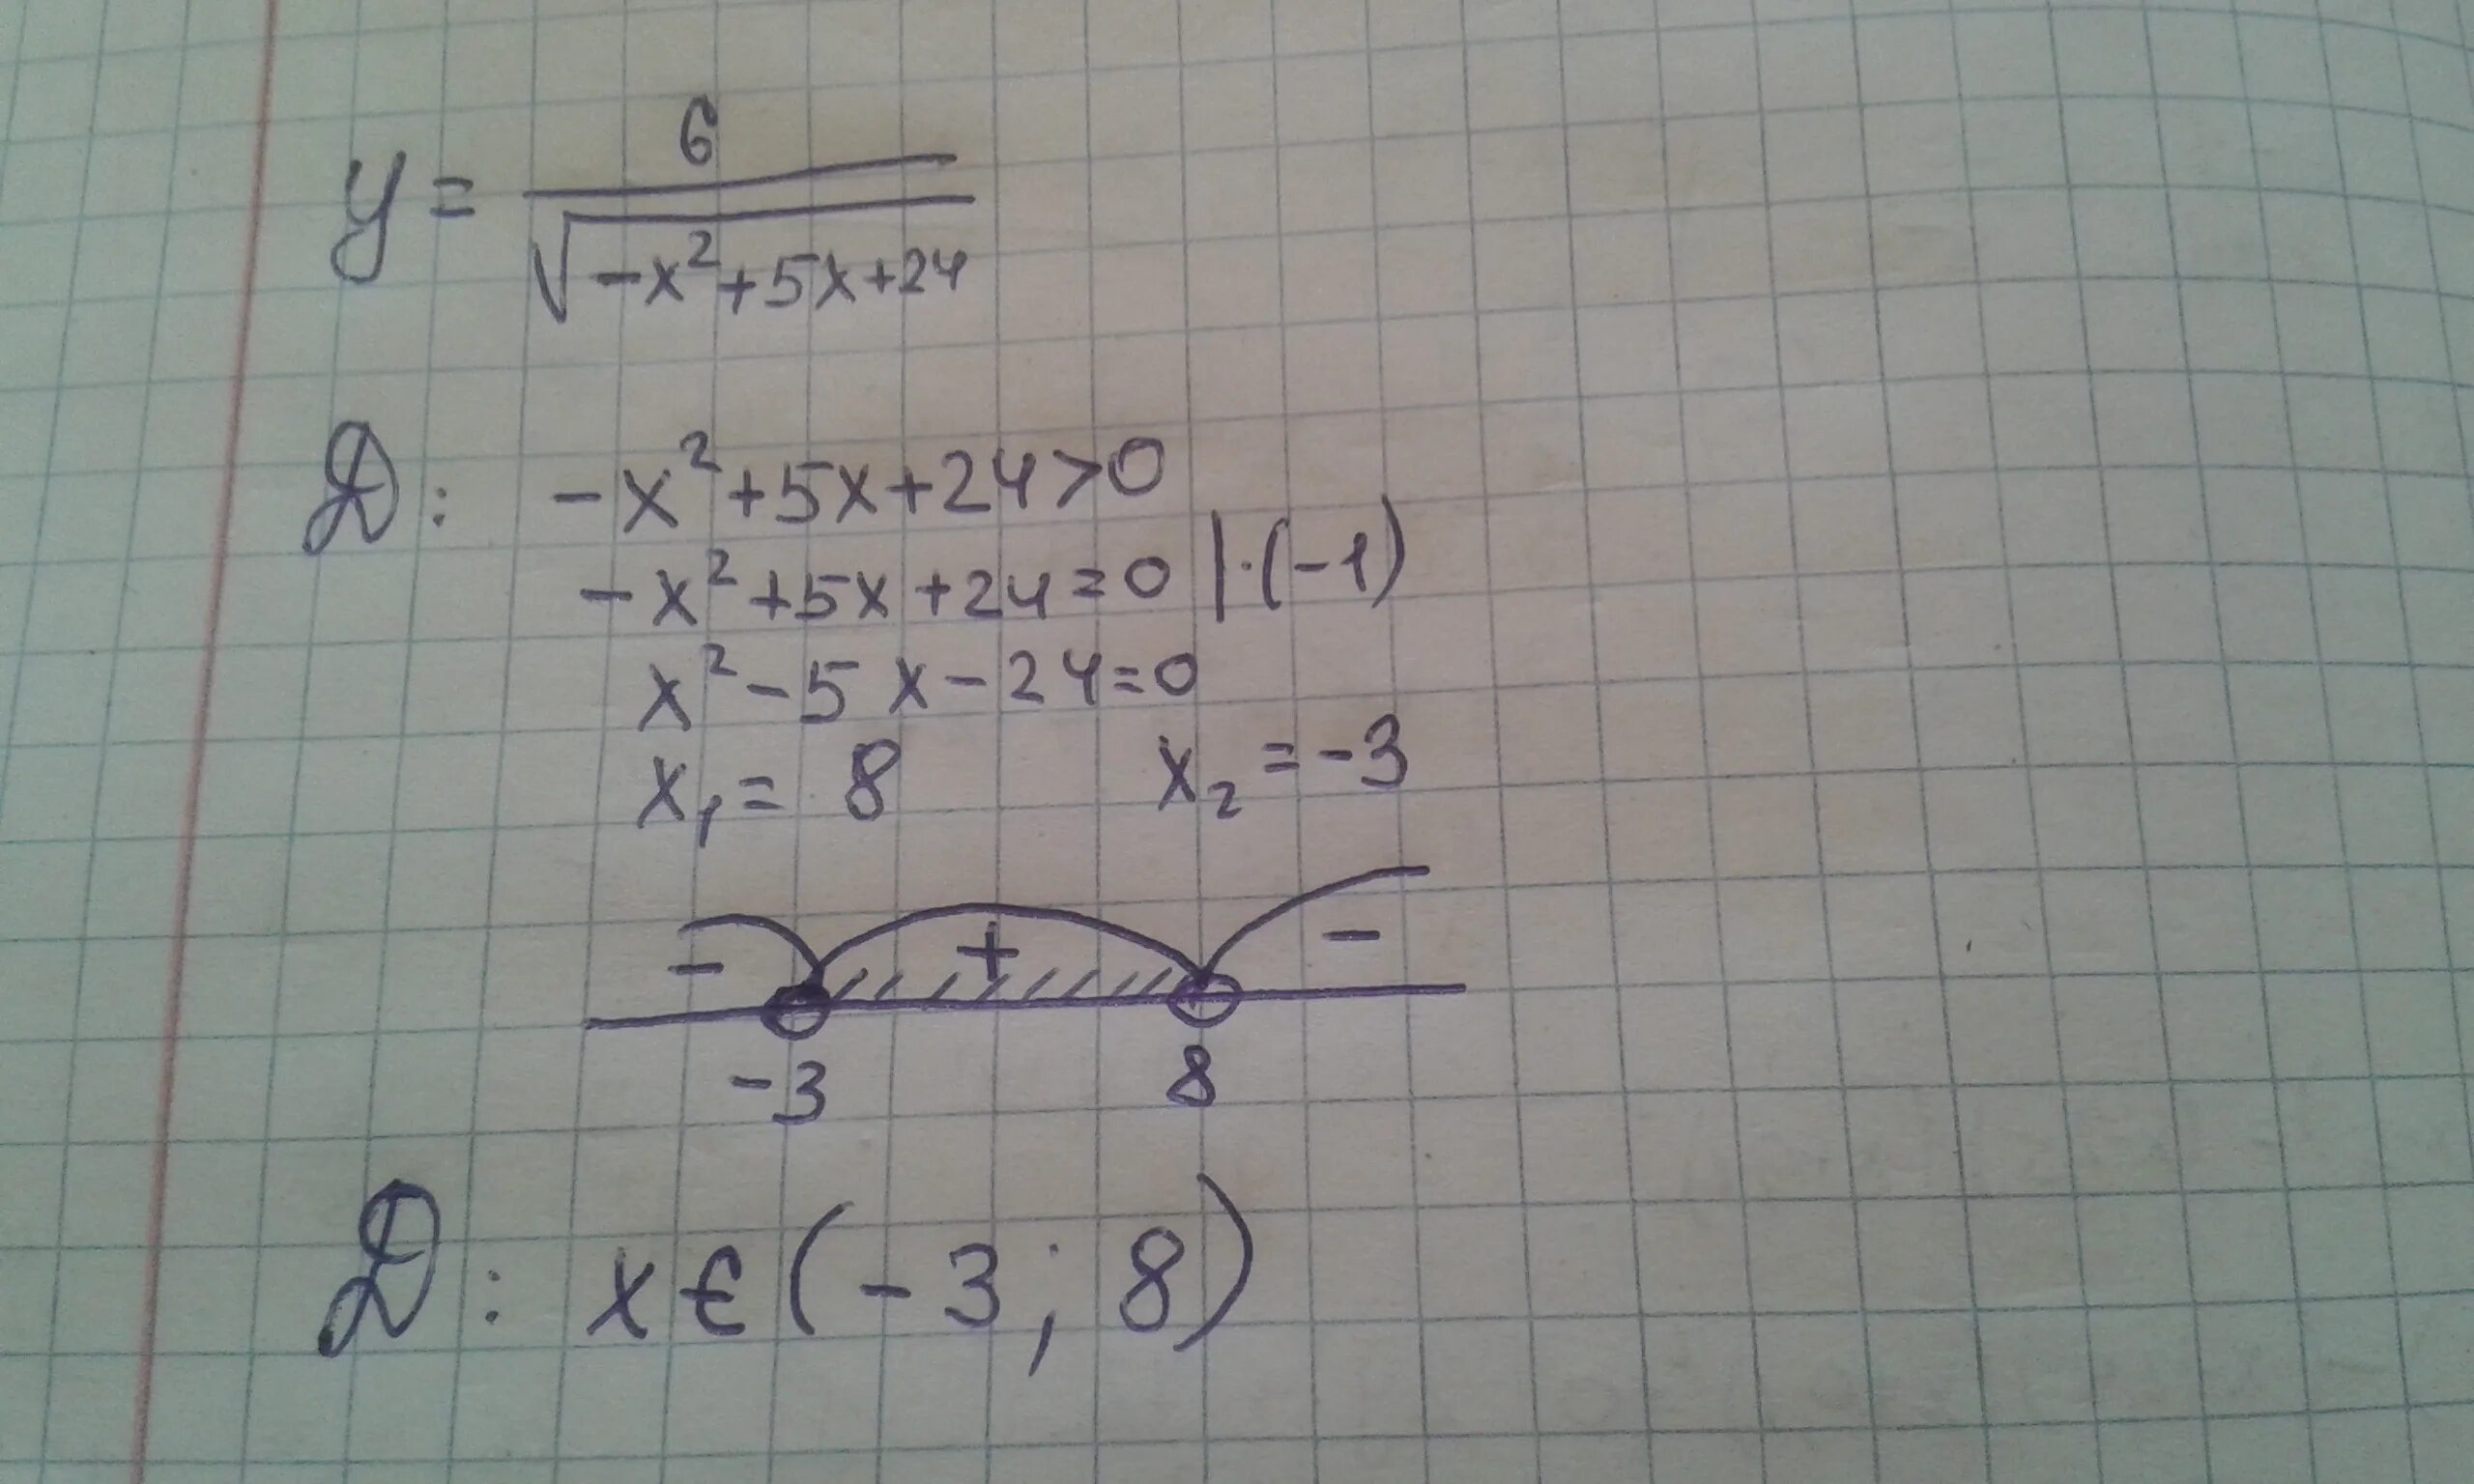 y = 6 / √(-x² + 5x + 24)
D: -x² + 5x + 24 > 0
-x² + 5x + 24 = 0 | · (-1)
x² - 5x - 24 = 0
x₁ = 8 x₂ = -3
- + -
-3 8
D: x ∈ (-3; 8)